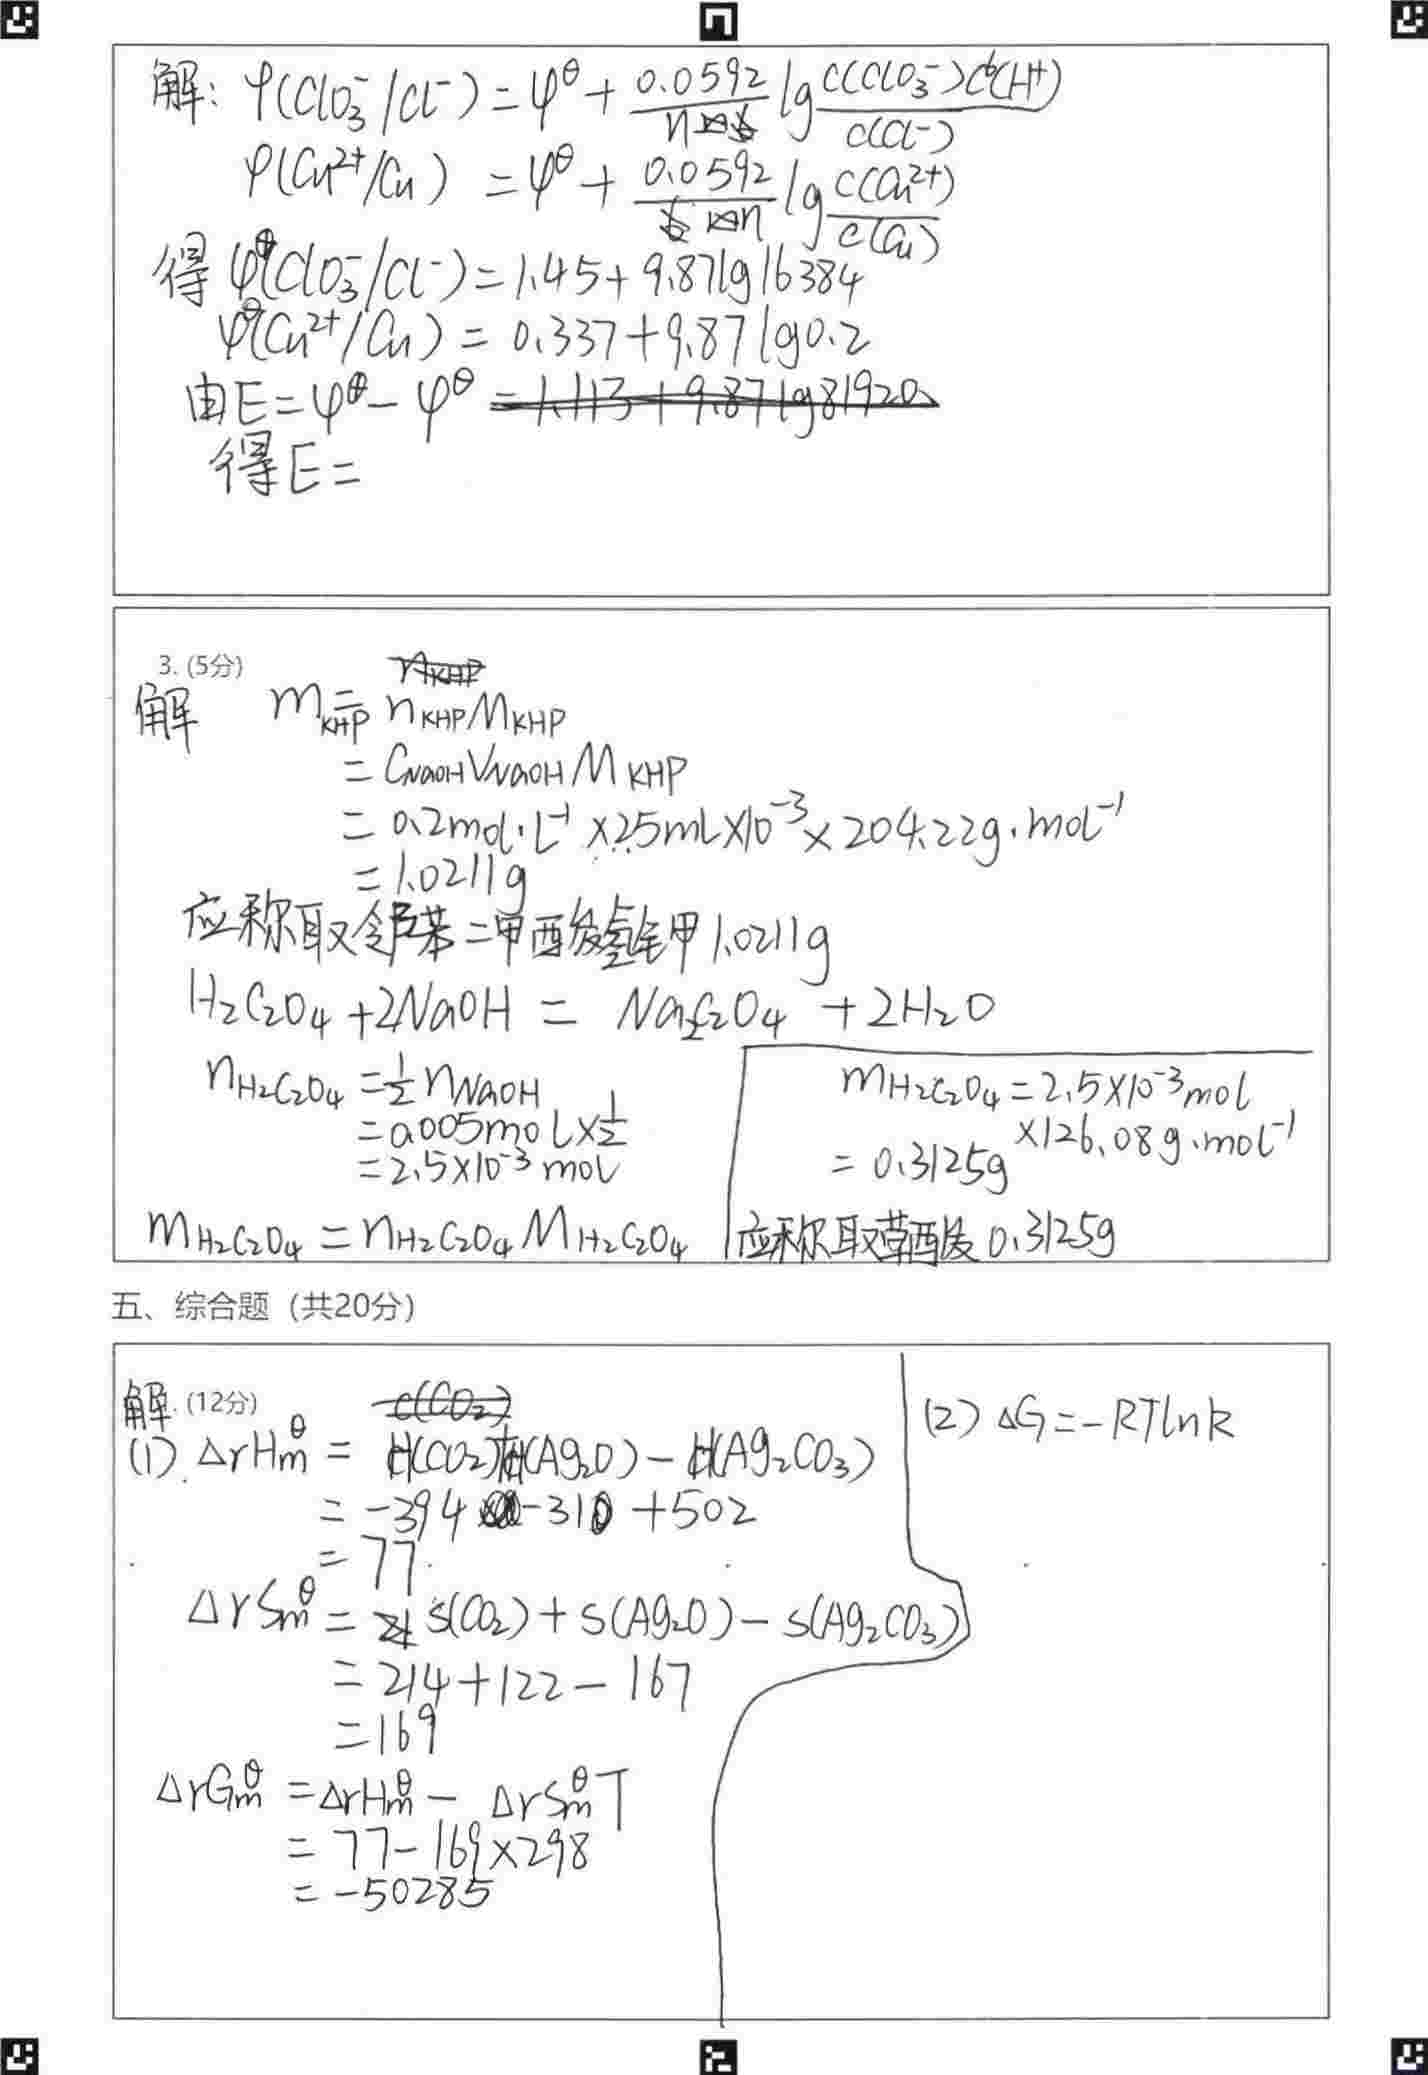 解: φ(ClO₃⁻/Cl⁻) = φ^θ + 0.0592/n lg c(ClO₃⁻)c⁶(H⁺)/c(Cl⁻)
φ(Cu²⁺/Cu) = φ^θ + 0.0592/n lg c(Cu²⁺)/c(Cu)
得 φ^θ(ClO₃⁻/Cl⁻) = 1.45 + 9.87lg16384
φ^θ(Cu²⁺/Cu) = 0.337 + 9.87lg0.2
由E = φ^θ - φ^θ = 1.113 + 9.87lg81920
得E =
3. (5分)
n_KHP
解 m_KHP = n_KHP M_KHP
= C_NaOH V_NaOH M_KHP
= 0.2mol·L⁻¹ × 25mL×10⁻³ × 204.22g·mol⁻¹
= 1.0211g
应称取邻苯二甲酸氢钾1.0211g
H₂C₂O₄ + 2NaOH = Na₂C₂O₄ + 2H₂O
n_H₂C₂O₄ = ½ n_NaOH
= 0.005mol×½
= 2.5×10⁻³ mol
m_H₂C₂O₄ = n_H₂C₂O₄ M_H₂C₂O₄
m_H₂C₂O₄ = 2.5×10⁻³mol
×126.08g·mol⁻¹
= 0.3125g
应称取草酸0.3125g
五、综合题（共20分）
解. (12分)
c(CO₂)
(1). ΔrHm^θ = H(CO₂)+H(Ag₂O) - H(Ag₂CO₃)
= -394 -31 +502
= 77
ΔrSm^θ = S(CO₂) + S(Ag₂O) - S(Ag₂CO₃)
= 214 + 122 - 167
= 169
ΔrGm^θ = ΔrHm^θ - ΔrSm^θT
= 77 - 169×298
= -50285
(2) ΔG = -RTlnk